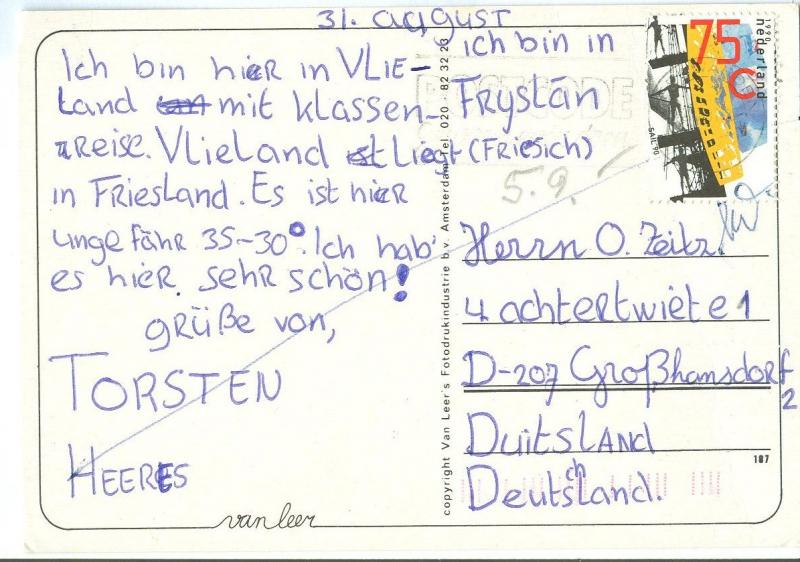 31. august
Ich bin hier in VLIE-
Land mit klassen-
reise. VLieLand Liegt
in FriesLand. Es ist hier
ungefähr 35-30°. Ich hab'
es hier sehr schön!
grüße von,
TORSTEN
HEERES
van leer
copyright Van Leer's Fotodrukindustrie b.v. Amsterdam Tel. 020 - 82 32 23
ich bin in
FRYSLÂN
(FRIESICH)
5.9.
POSTCODE
75
C
nederland
1990
SAIL '90
Herrn O. Zeitz
4 achtertwiete 1
D-207 Großhansdorf
2
DUITSLAND
Deutschland.
187